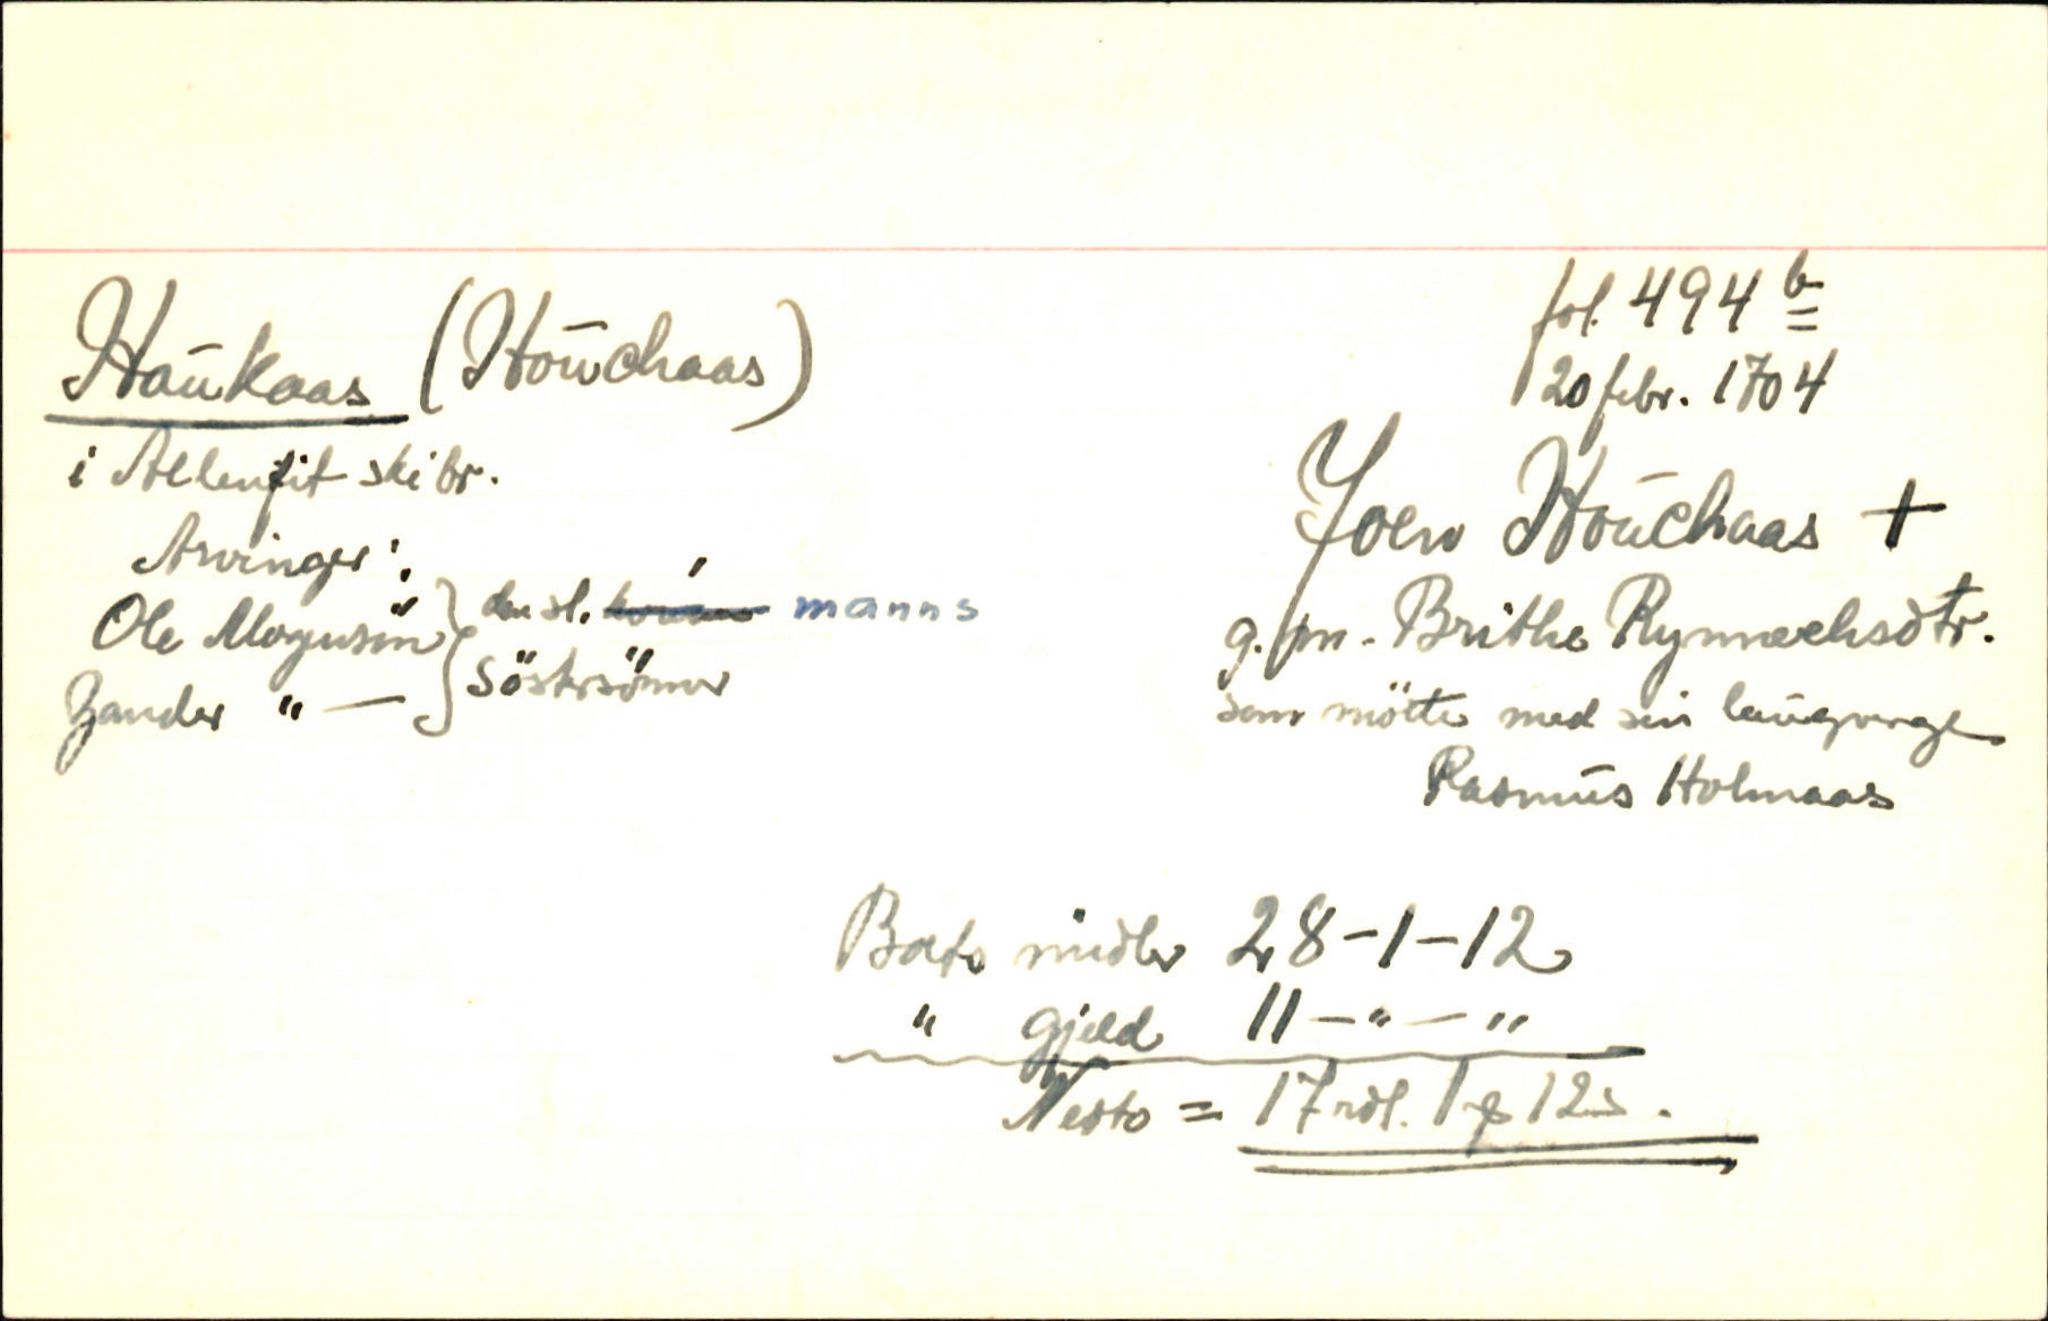 fol. 494 b
20 febr. 1704
Haukaas (Houchaas)
i Allenfit skibr.
Joen Houchaas +
g. m. Brithe Rynnechsdtr.
som mötte med sin laugverge
Rasmus Holmaas
Arvinger:
Ole Mogusön } den sl. manns
Zander " — } Söstersönner
Boets midler 28-1-12
" gjeld 11 - " - "
Netto = 17 rdl. 1 12 s.